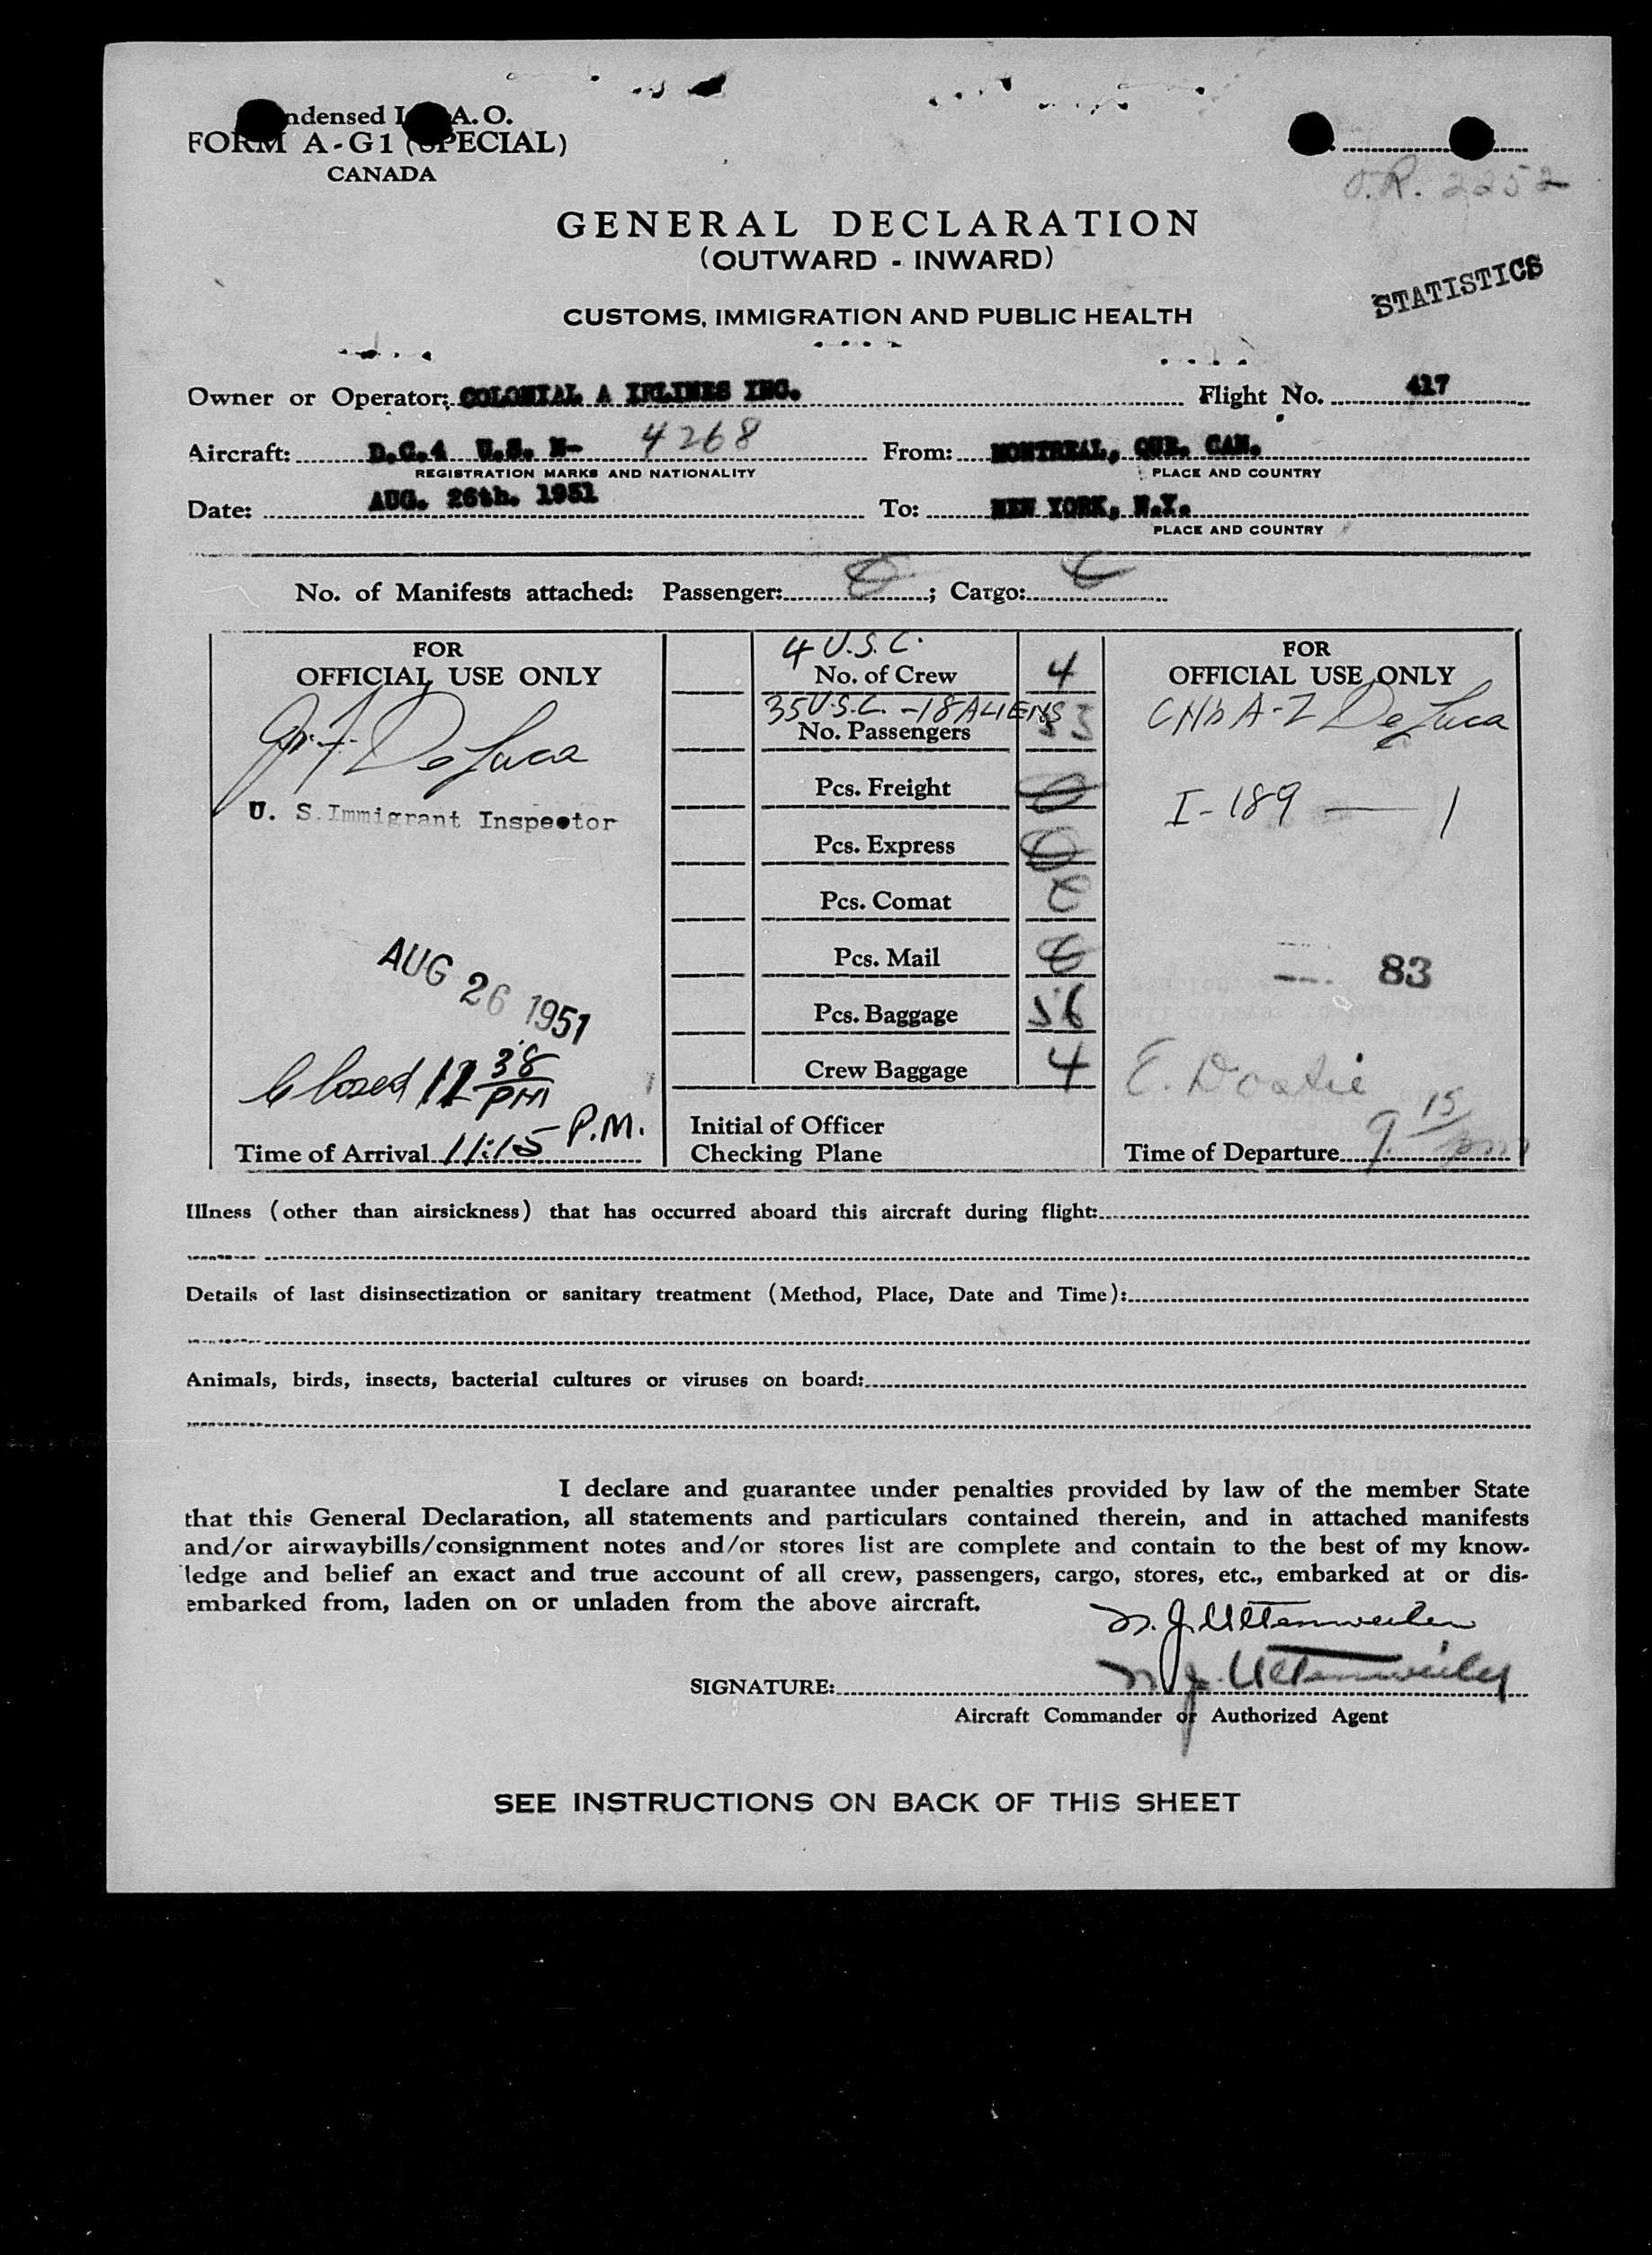 ndensed I A.O.
FORM A-G1 (SPECIAL)
CANADA
O.R. 2252
GENERAL DECLARATION
(OUTWARD - INWARD)
STATISTICS
CUSTOMS, IMMIGRATION AND PUBLIC HEALTH
Owner or Operator: COLONIAL A IRLINES INC. Flight No. 417
Aircraft: D.C.4 U.S. N- 4268 From: MONTREAL, QUE. CAN.
REGISTRATION MARKS AND NATIONALITY PLACE AND COUNTRY
Date: AUG. 26th. 1951 To: NEW YORK, N.Y.
PLACE AND COUNTRY
No. of Manifests attached: Passenger: ; Cargo:
FOR 4 U.S.C. FOR
OFFICIAL USE ONLY No. of Crew 4 OFFICIAL USE ONLY
35 U.S.C. - 18 ALIENS
No. Passengers 53 A-Z DeLuca
DeLuca
Pcs. Freight I-189 — 1
U. S. Immigrant Inspector
Pcs. Express
Pcs. Comat
AUG 26 1951 Pcs. Mail 83
Pcs. Baggage 56
Closed 12 38 PM Crew Baggage 4
Initial of Officer
Time of Arrival 11:15 P.M. Checking Plane Time of Departure 9 15 pm
Illness (other than airsickness) that has occurred aboard this aircraft during flight:
Details of last disinsectization or sanitary treatment (Method, Place, Date and Time):
Animals, birds, insects, bacterial cultures or viruses on board:
I declare and guarantee under penalties provided by law of the member State
that this General Declaration, all statements and particulars contained therein, and in attached manifests
and/or airwaybills/consignment notes and/or stores list are complete and contain to the best of my know-
ledge and belief an exact and true account of all crew, passengers, cargo, stores, etc., embarked at or dis-
embarked from, laden on or unladen from the above aircraft.
SIGNATURE:
Aircraft Commander or Authorized Agent
SEE INSTRUCTIONS ON BACK OF THIS SHEET